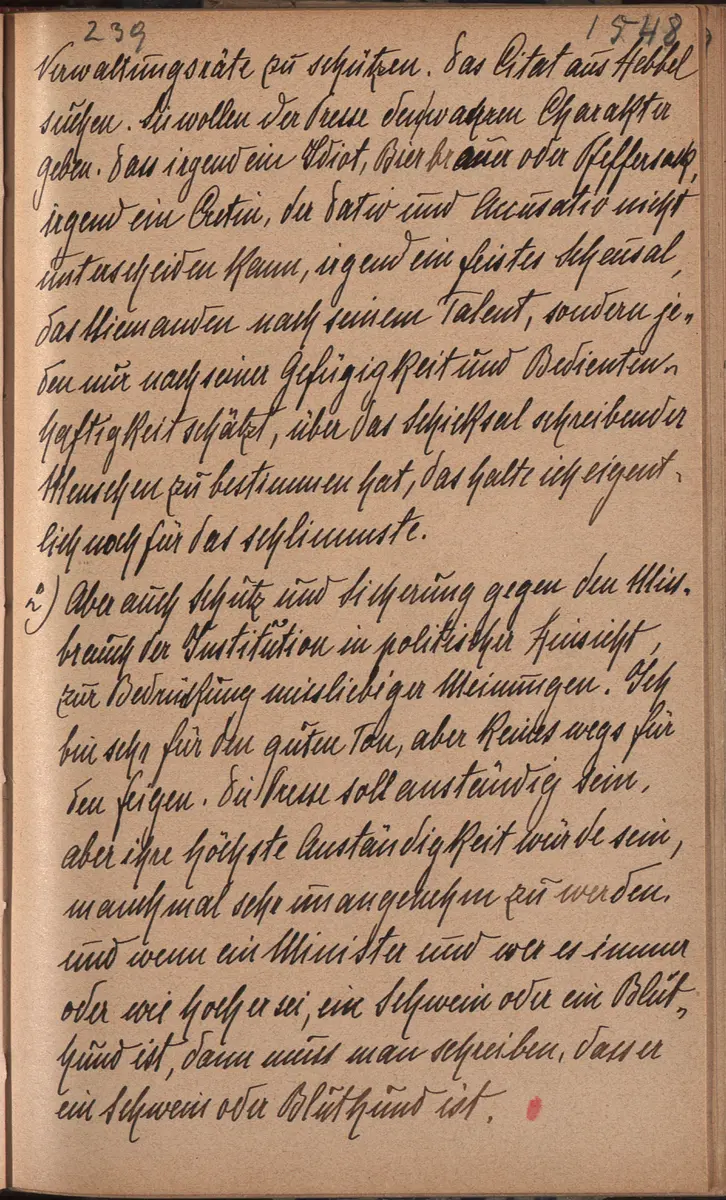 239 1548
Verwaltungsräte zu schützen. Das Citat aus Hebbel
suchen. Sie wollen der Presse den wahren Charakter
geben. Dass irgend ein Idiot, Bierbrauer oder Pfeffersack,
irgend ein Cretin, der Dativ und Accusativ nicht
unterscheiden kann, irgend ein feistes Scheusal,
das Niemanden nach seinem Talent, sondern je„
den nur nach seiner Gefügigkeit und Bedienten„
haftigkeit schätzt, über das Schicksal schreibender
Menschen zu bestimmen hat, das halte ich eigent„
lich noch für das schlimmste.
2) Aber auch Schutz und Sicherung gegen den Miss„
brauch der Institution in politischer Hinsicht,
zur Bedrückung missliebiger Meinungen. Ich
bin sehr für den guten Ton, aber keineswegs für
den feigen. Die Presse soll anständig sein,
aber ihre höchste Anständigkeit würde sein,
manchmal sehr unangenehm zu werden,
und wenn ein Minister und wer es immer
oder wie hoch er sei, ein Schwein oder ein Blut„
hund ist, dann muss man schreiben, dass er
ein Schwein oder Bluthund ist.